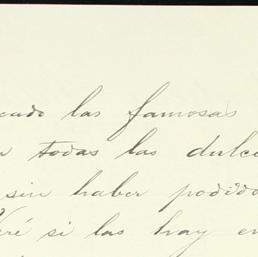 cado las famosas
todas las dulce
sin haber podido
ré si las hay en